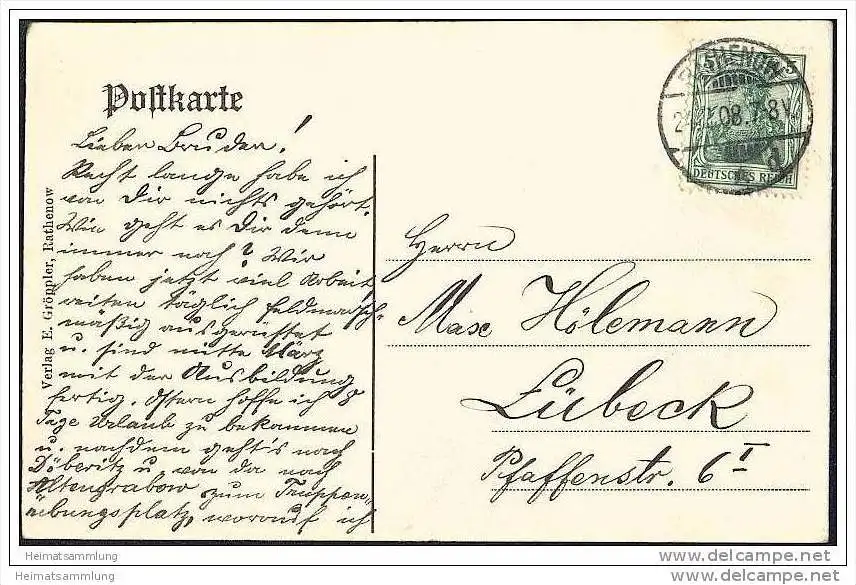 Postkarte
Lieber Bruder!
Recht lange habe ich
von Dir nichts gehört.
Wie geht es Dir denn
immer noch? Wir
haben jetzt viel Arbeit
reiten täglich feldmarsch-
mäßig ausgerüstet
u. sind mitte März
mit der Ausbildung
fertig. Ostern hoffe ich 8
Tage Urlaub zu bekommen
u. nachdem geht's nach
Döberitz u. von da nach
Altengrabow zum Truppen-
übungsplatz, worauf ich
Verlag E. Gröppler, Rathenow
RATHENOW
08. 7-8V.
5
DEUTSCHES REICH
Herrn
Max Hölemann
Lübeck
Pfaffenstr. 6 I
Heimatsammlung
Heimatsammlung
www.delcampe.net
www.delcampe.net